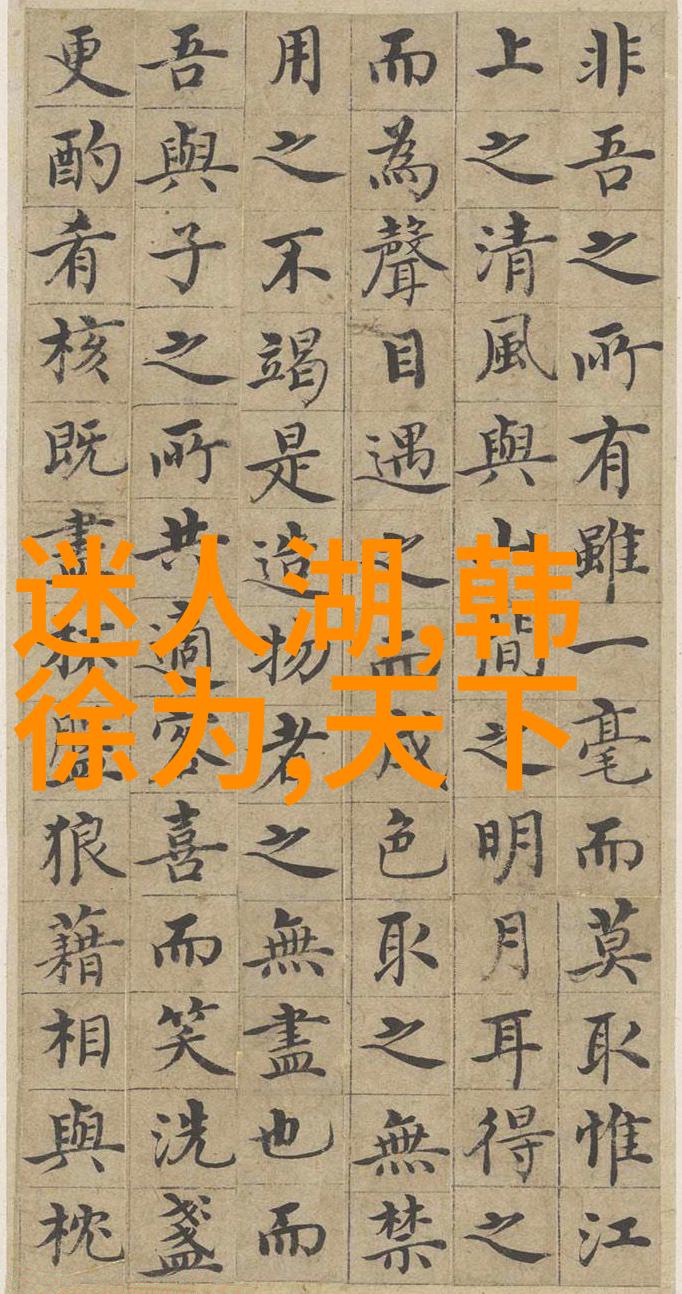 非吾之所有雖一毫而莫取惟江
上之清風與山間之明月耳得之
而為聲目遇之而成色取之無禁
用之不竭是造物者之無盡也而
吾與子之所共適客喜而笑洗盞
更酌肴核既盡杯盤狼藉相與枕
迷人湖,韩
徐为,天下